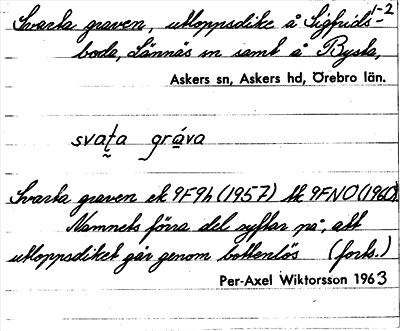 1-2
Svarta graven, utloppsdike å Sigfrids-
boda, Lännäs sn samt å Bysta,
Askers sn, Askers hd, Örebro län.
svata gráva
Svarta graven ek 9F9h (1957) tk 9FNO (1960)
Namnets förra del syftar på, att
utloppsdiket går genom bottenlös (forts.)
Per-Axel Wiktorsson 1963